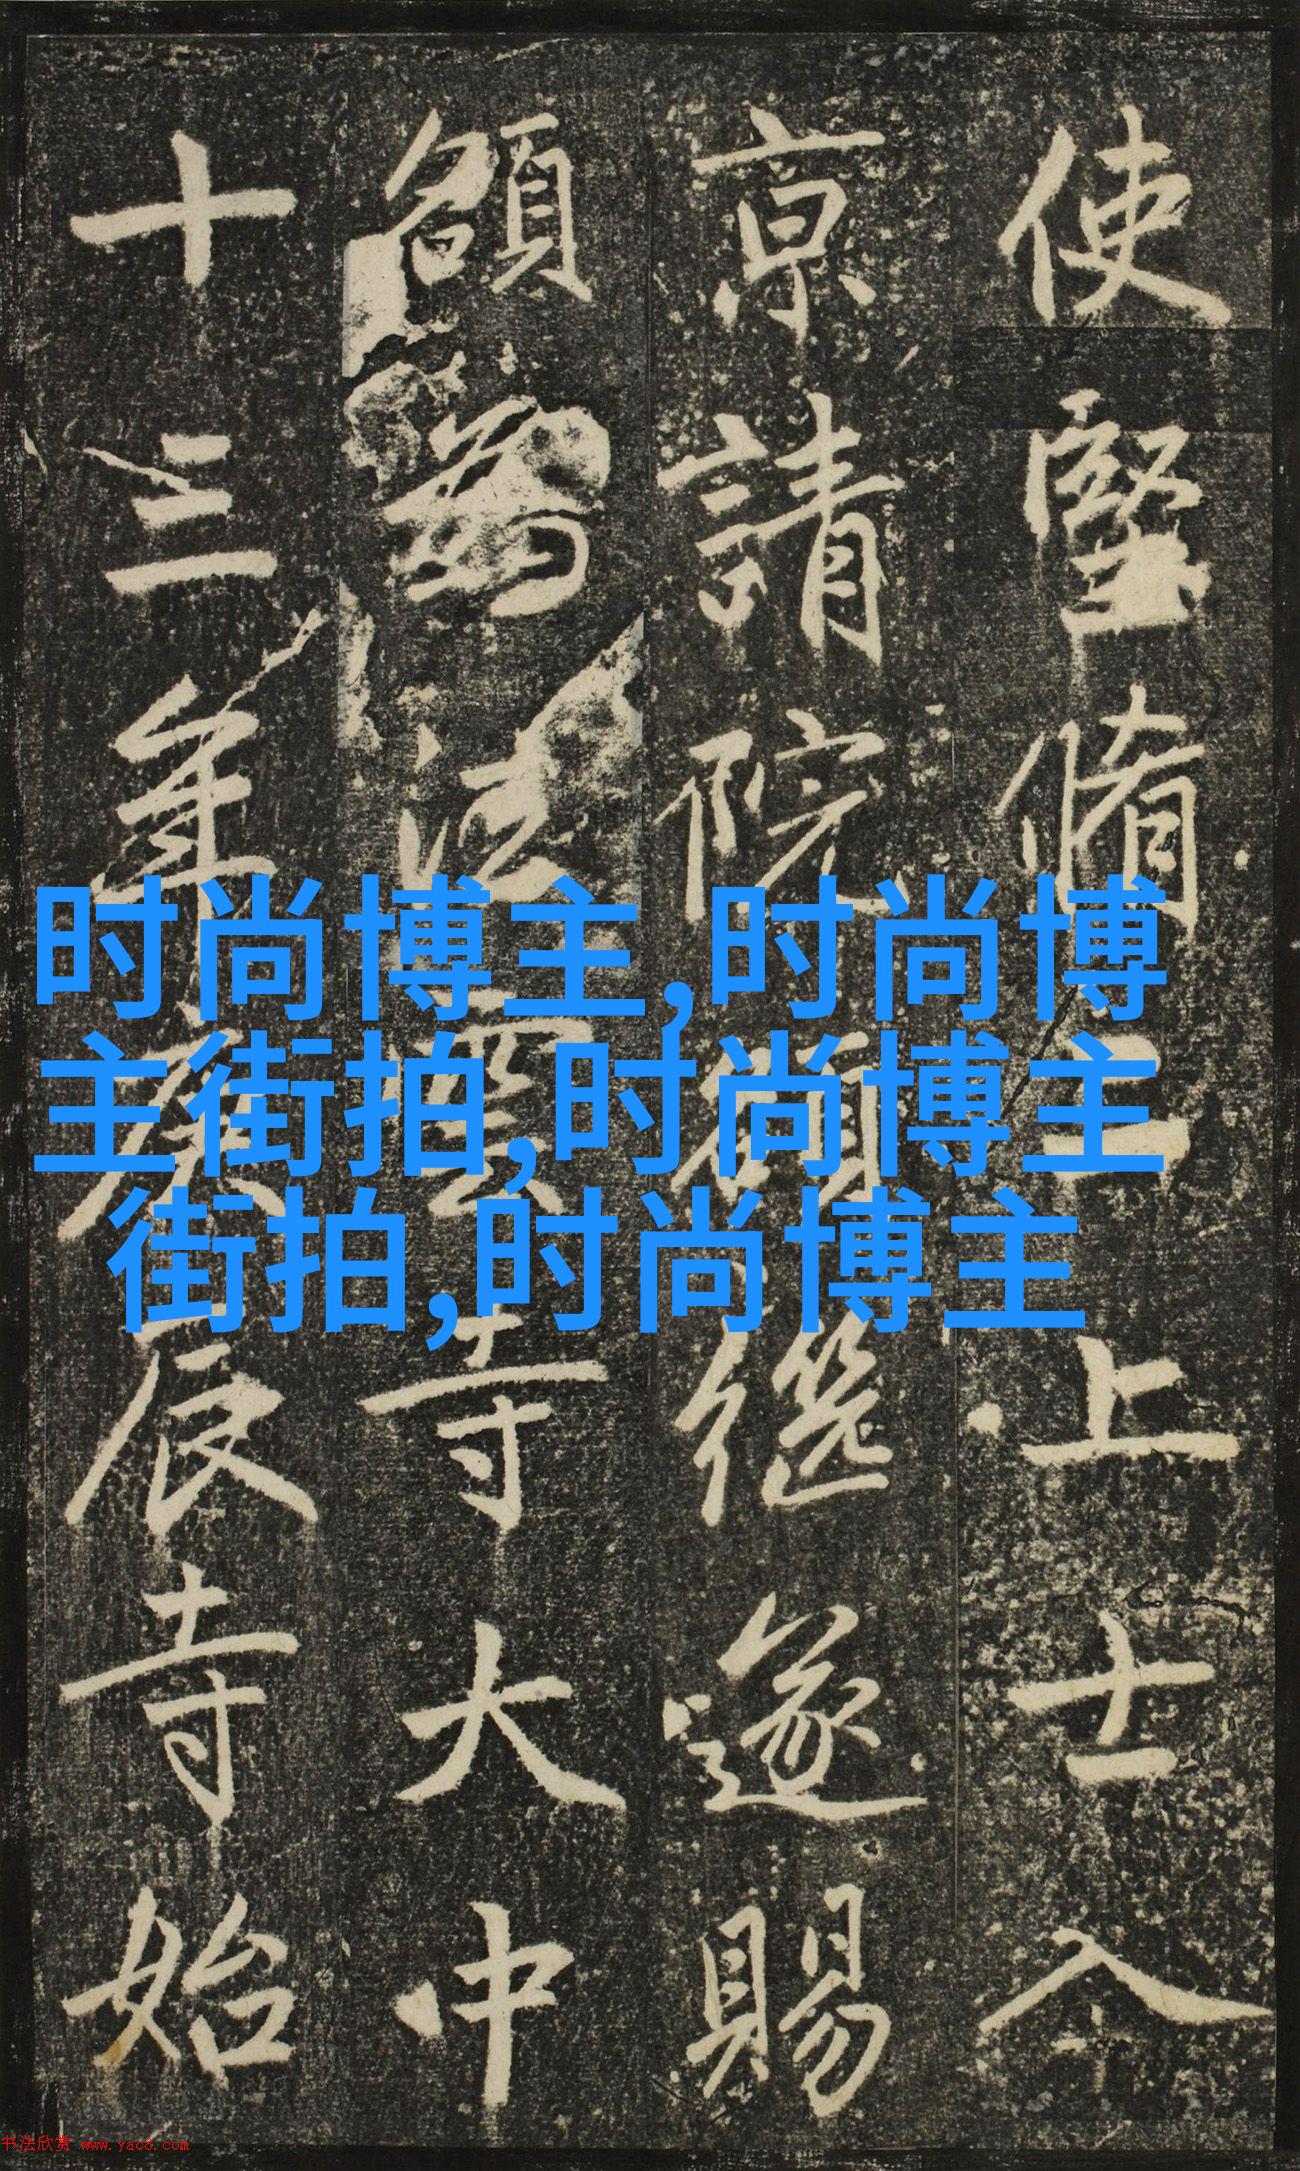 使堅脩二上士入
京請院額繼遂賜
額為法雲寺大中
十三年庚辰寺始
时尚博主,时尚博
主街拍,时尚博主
街拍,时尚博主
书法欣赏 www.yac8.com